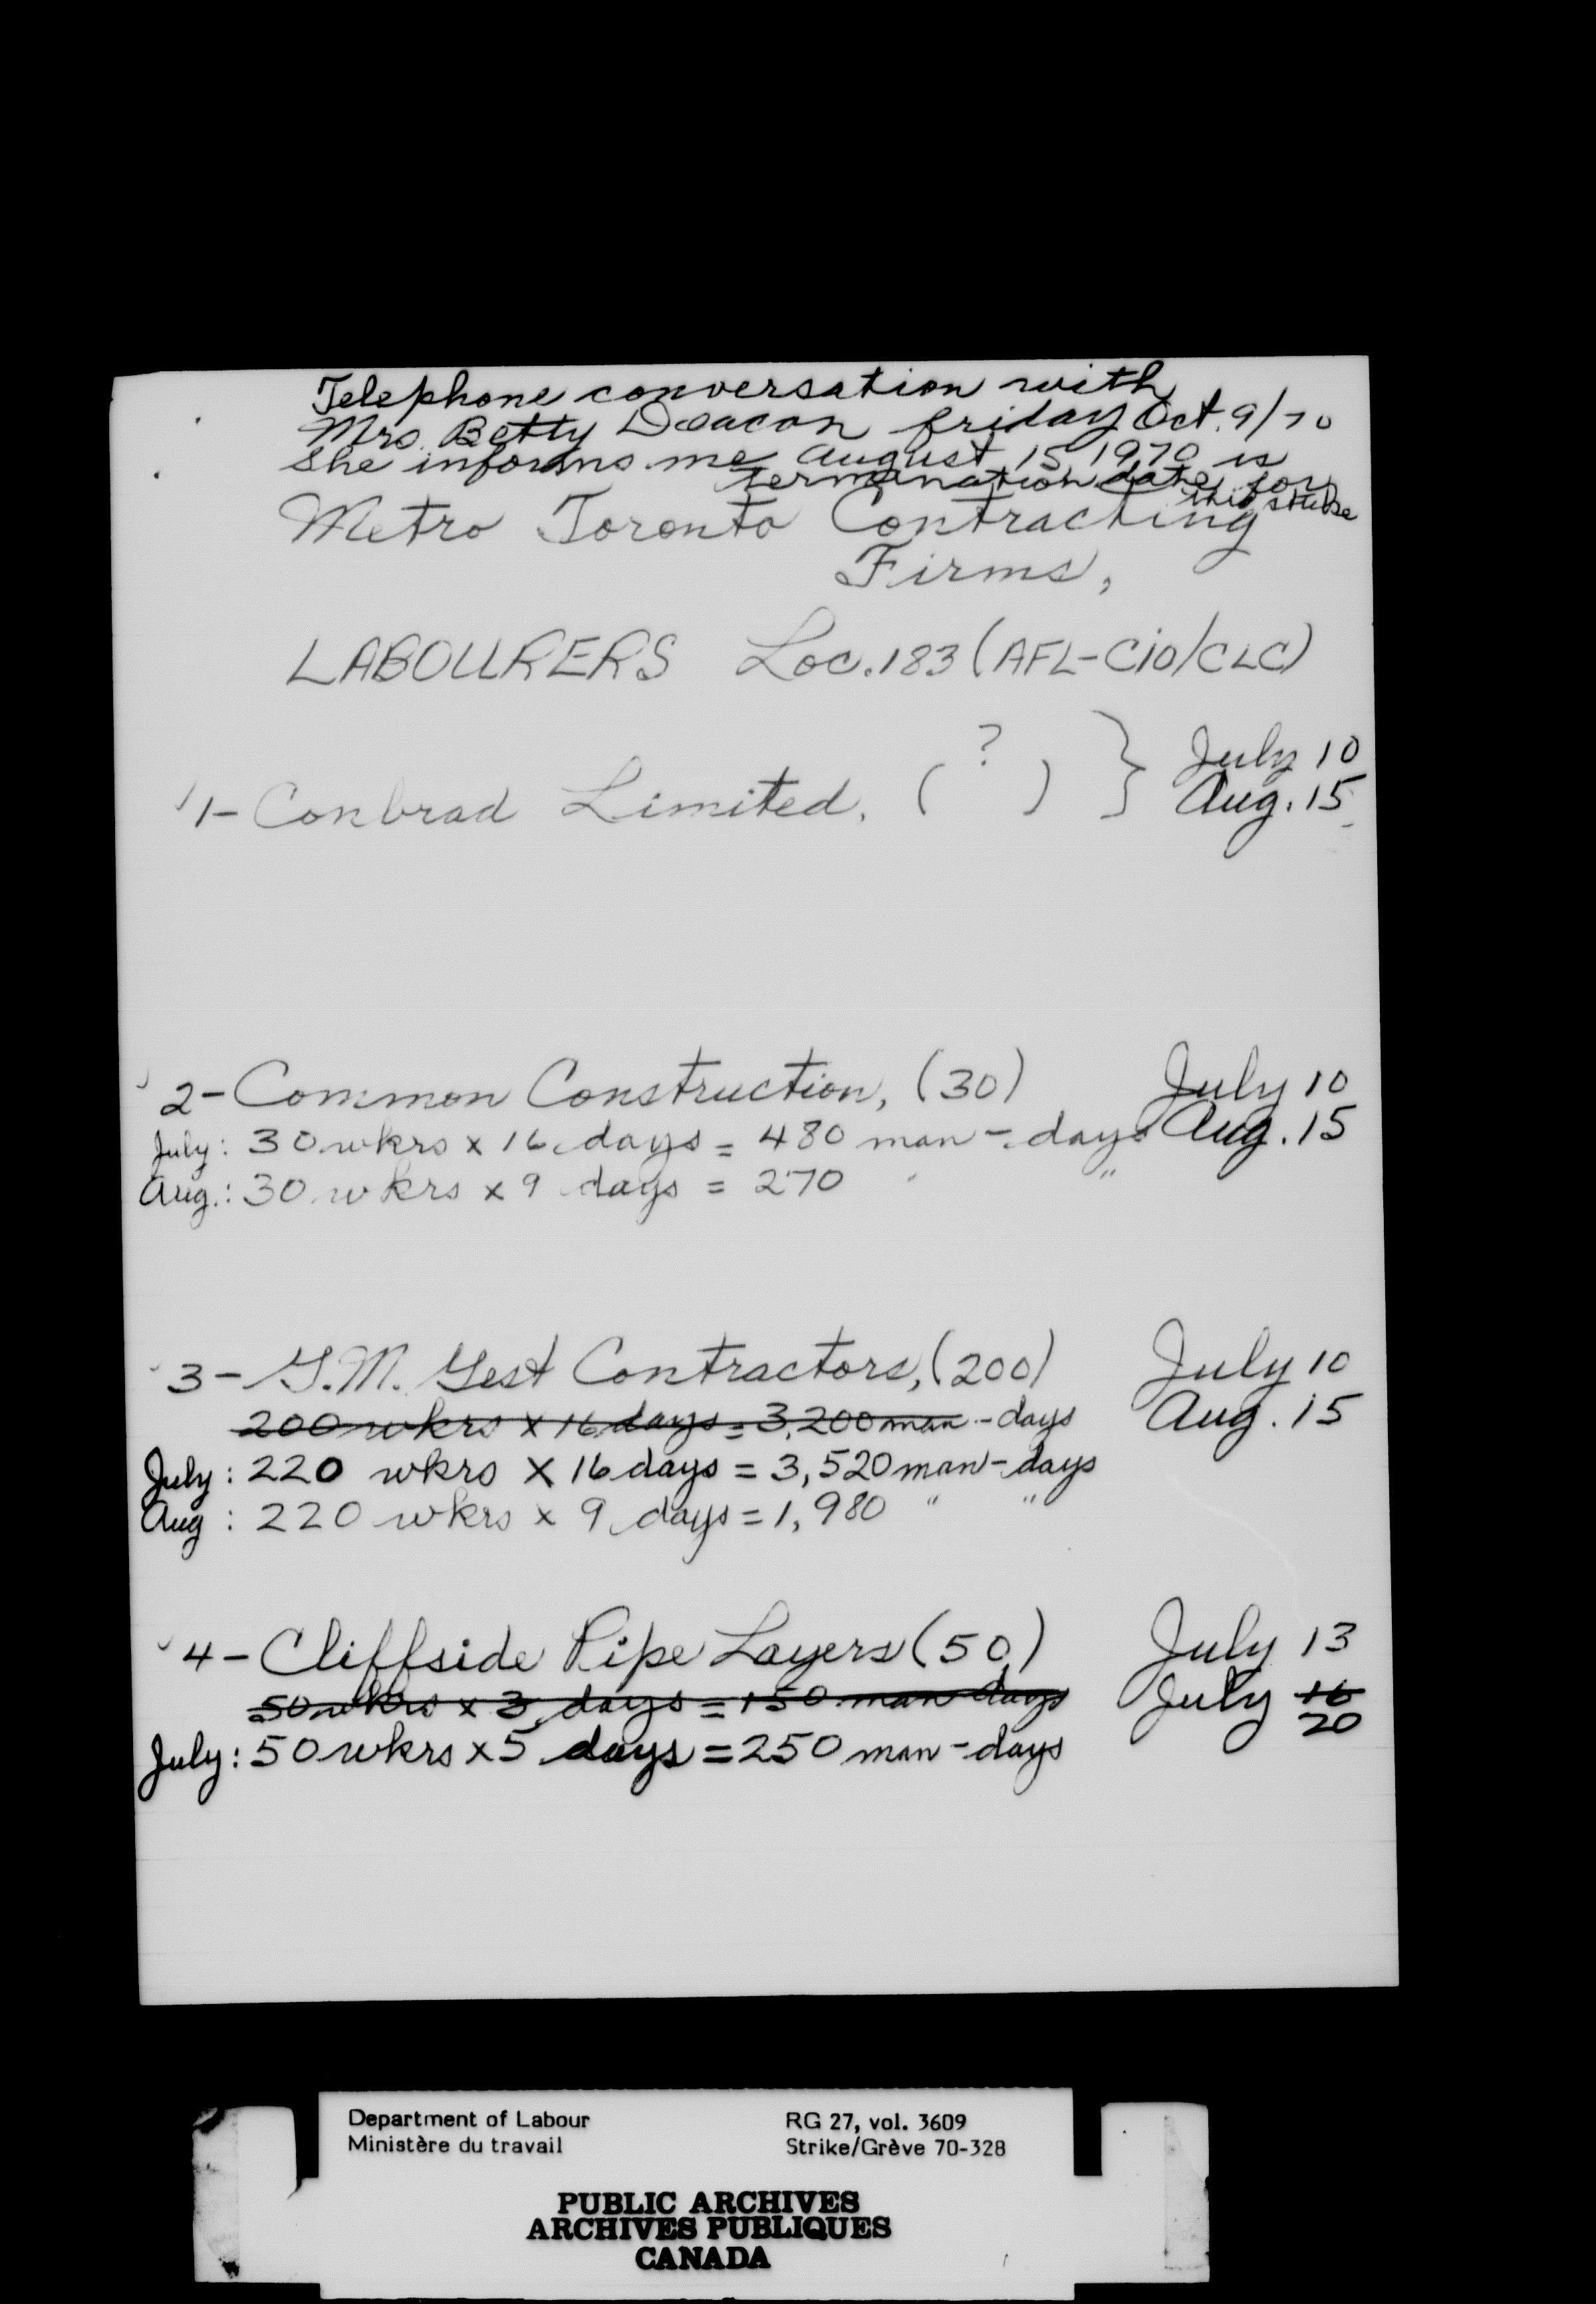 Telephone conversation with
Mrs. Betty Deacon friday Oct. 9/70
She informs me August 15 1970 is
termination date for
this strike
Metro Toronto Contracting
Firms,
LABOURERS Loc. 183 (AFL-CiO/CLC)
?
July 10
1- Conbrad Limited, ( ) } Aug. 15
2- Common Construction, (30) July 10
July: 30 wkrs x 16 days = 480 man-days Aug. 15
Aug.: 30 wkrs x 9 days = 270 " "
3- G.M. Gest Contractors, (200) July 10
200 wkrs x 16 days = 3,200 man-days Aug. 15
July: 220 wkrs X 16 days = 3,520 man-days
Aug: 220 wkrs x 9 days = 1,980 " "
4- Cliffside Pipe Layers (50) July 13
50 wkrs x 3 days = 150 man days July 16
20
July: 50 wkrs x 5 days = 250 man-days
Department of Labour RG 27, vol. 3609
Ministère du travail Strike/Grève 70-328
PUBLIC ARCHIVES
ARCHIVES PUBLIQUES
CANADA